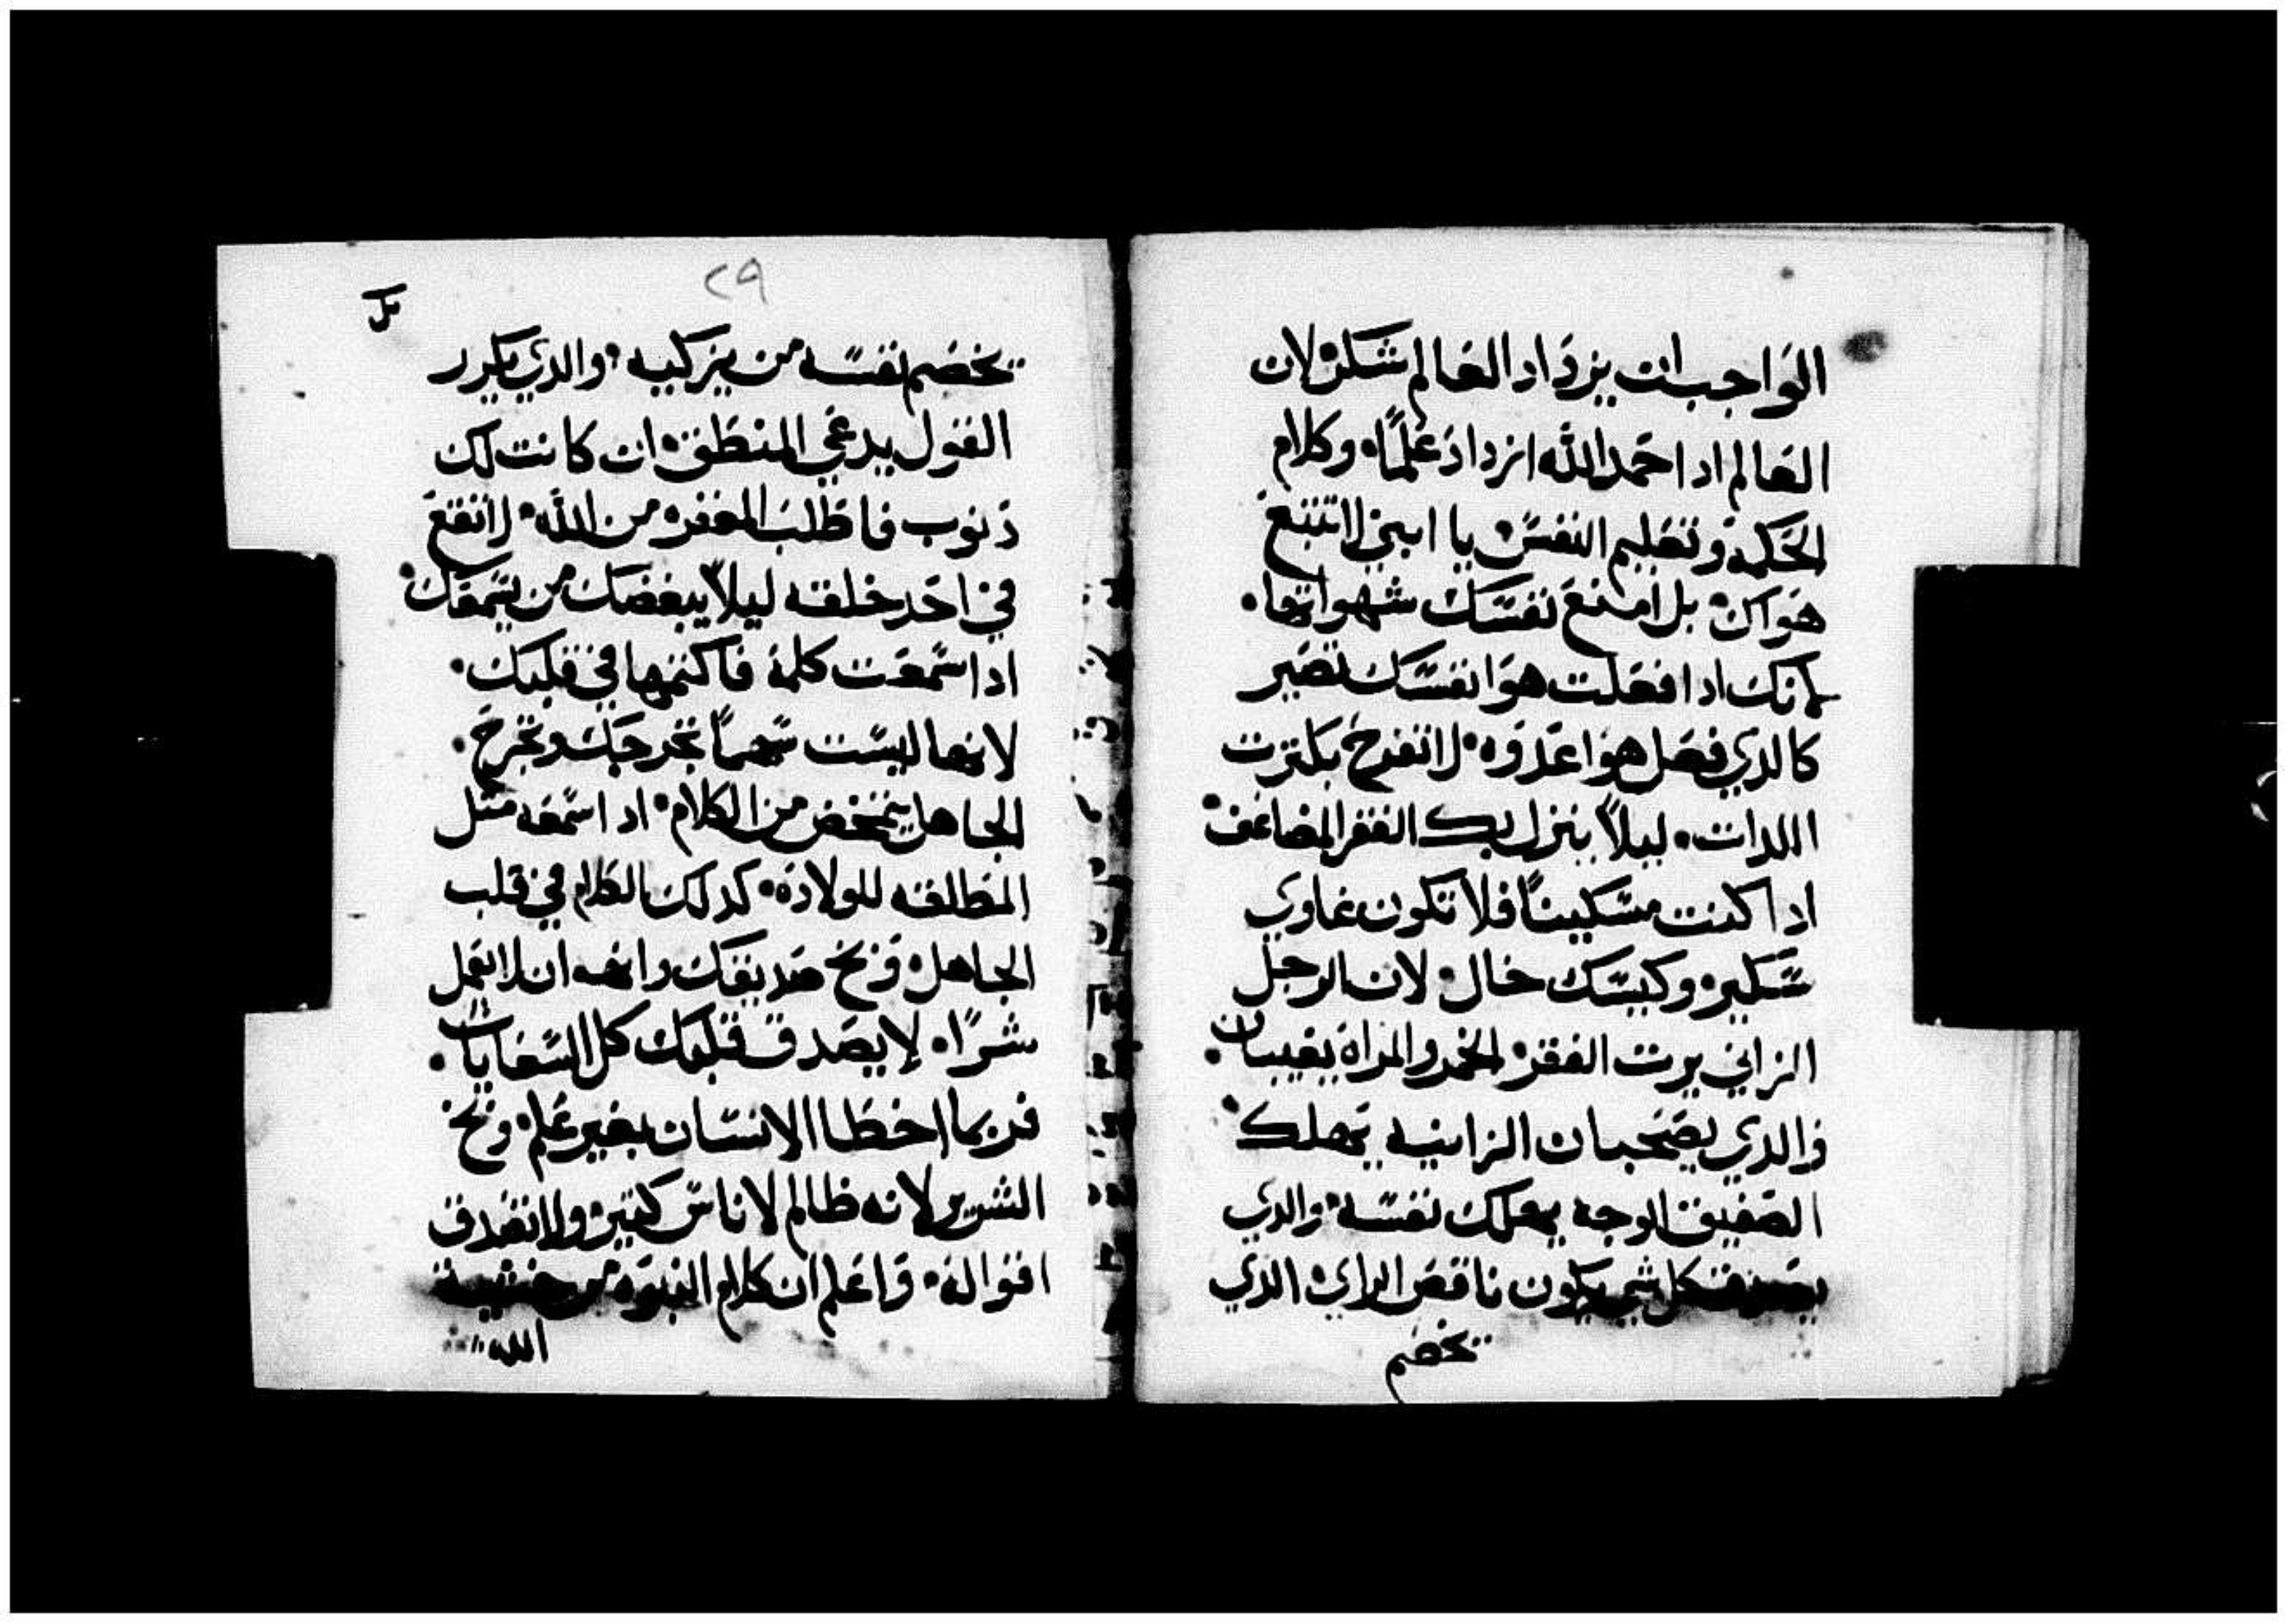 الواجب ان يزداد العالم شكر لان
العالم ادا حمد الله ازداد علمًا وكلام
الحكمه وتعليم النفس يا ابني لا تتبع
هواك بل امنع نفسك شهواتها
لانك ادا فعلت هوا نفسك تصير
كالدي فعل هوا عدوه لا تفرح بكترت
اللدات ليلاً ينزل بك الفقر المضاعف
ادا كنت مسكينًا فلا تكون غاوي
سكير وكيسك خال لان الرجل
الزاني يرت الفقر الخمر والمراه يغيبان
والدي يصحبان الزانيه يهلك
الصفيق الوجه يهلك نفسه والدي
يصدق كل شي يكون ناقص الراي الدي
تخضم
٢٩
تخضم نفسه من يزكيه والدي يكرر
القول يدعي المنطق ان كانت لك
ذنوب فاطلب المغفره من الله لا تقع
في احد خلقه ليلاً يبغضك من يسمعك
ادا سمعت كلمة فاكتمها في قلبك
لانها ليست سهمًا تجرحك وتخرج
الجاهل يتمخض من الكلام ادا سمعه متل
المطالقه للولاده كدلك الكلام في قلب
الجاهل وبخ صديقك وانهه ان لا يعمل
شرًا لا يصدق قلبك كل السعايات
فربما اخطا الانسان بغير علم وبخ
الشرير لانه ظالم لاناس كتير ولا تصدق
اقواله واعلم ان كلام النبوه من خشية
الله